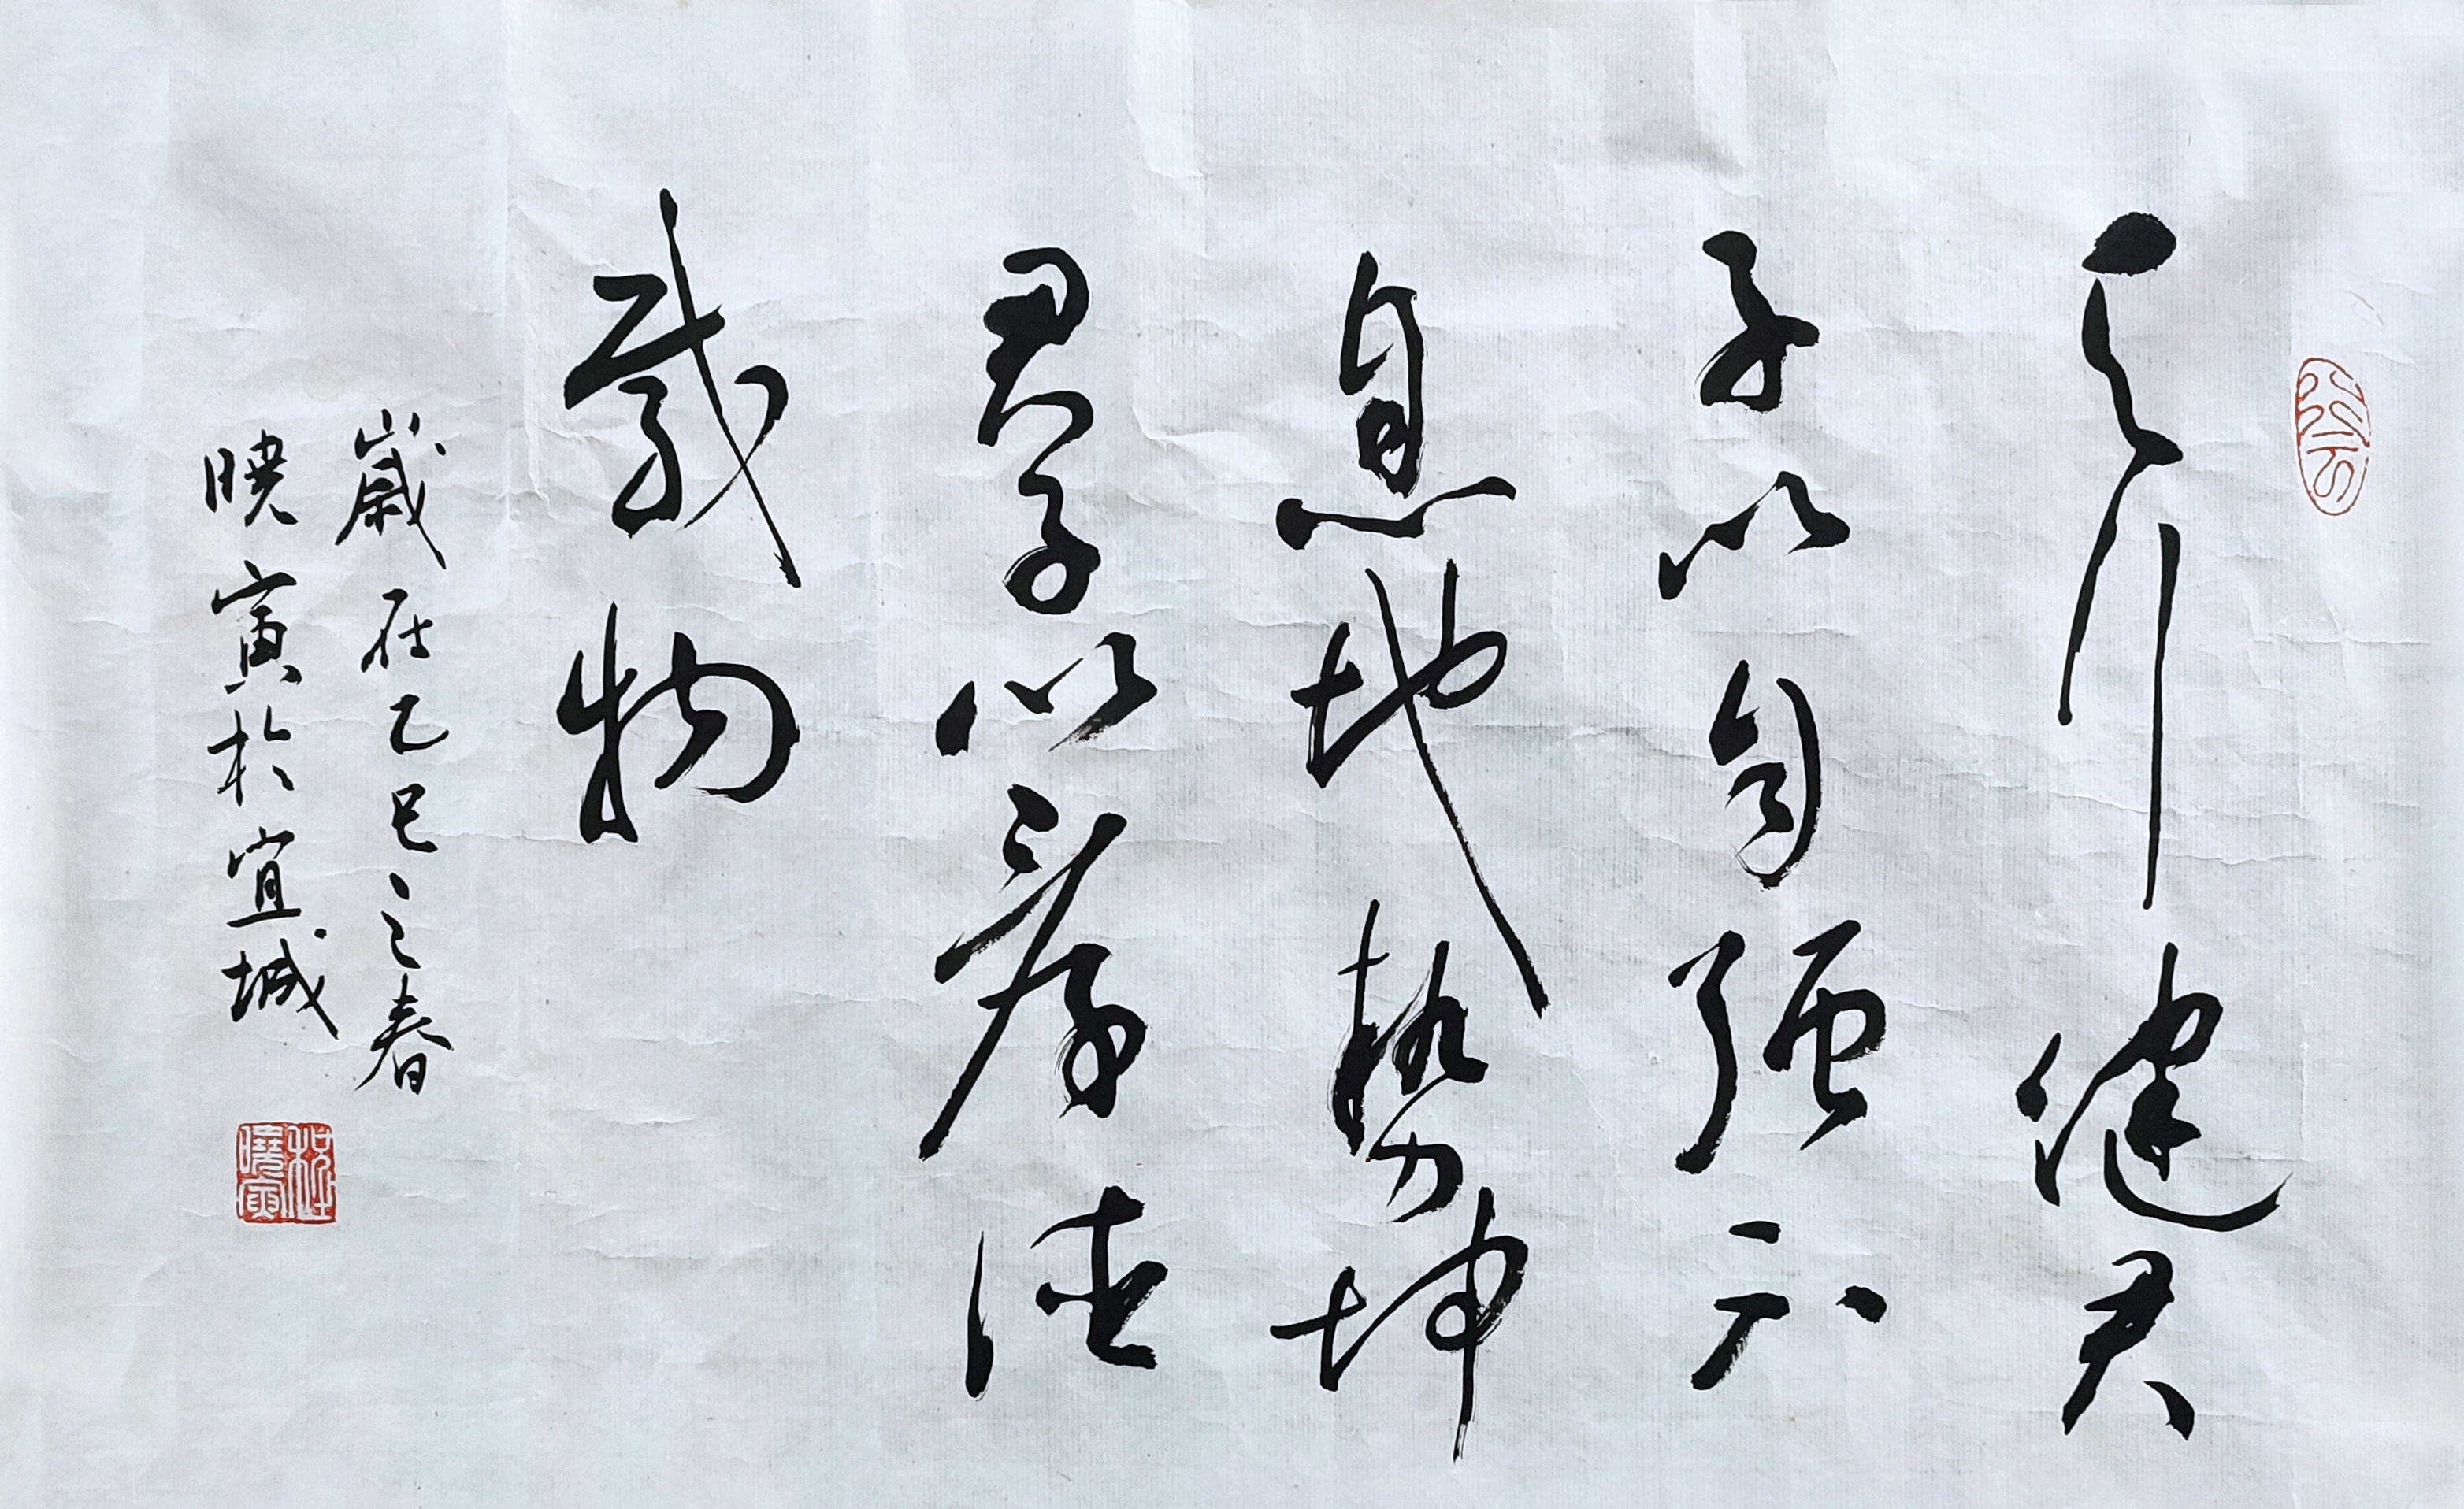 天行健君
子以自强不
息地势坤
君子以厚德
载物
歲在乙巳之春
曉寅於宜城